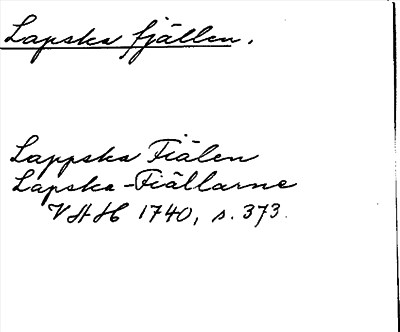 Lapska fjällen.
Lappska Fiälen
Lapska-Fiällarne
VAH 1740, s. 373.